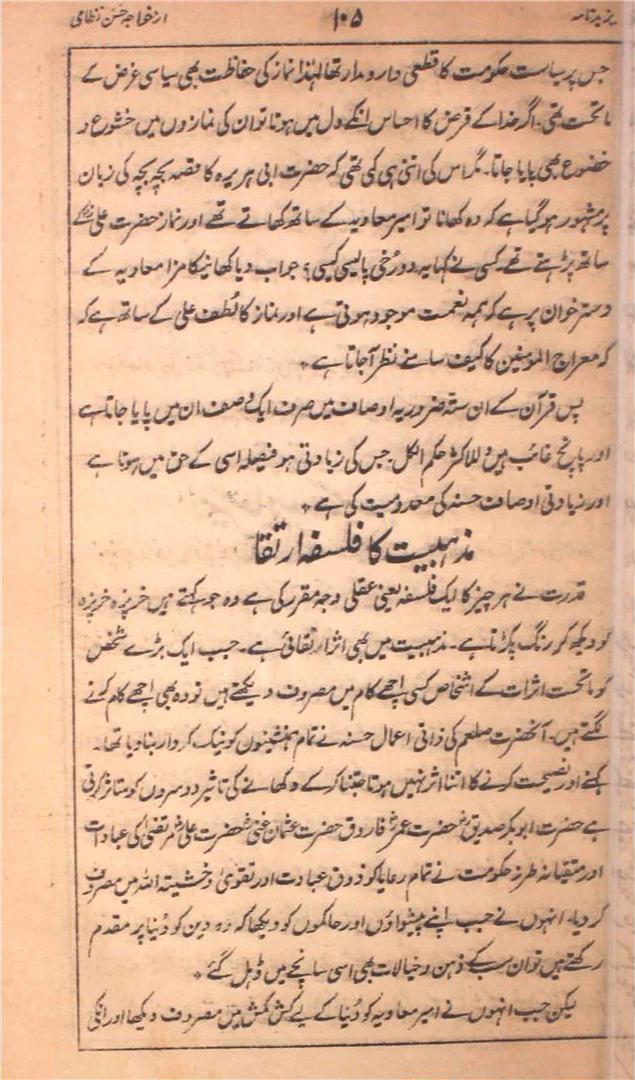 یزید نامہ ۱۰۵ از خواجہ حسن نظامی
جس پر سیاست حکومت کا قطعی دارومدار تھا لہٰذا نماز کی حفاظت بھی سیاسی غرض کے
ماتحت تھی۔ اگر خدا کے فرض کا احساس انکے دل میں ہوتا تو ان کی نمازوں میں خشوع و
خضوع بھی پایا جاتا۔ مگر اس کی اتنی ہی کمی تھی کہ حضرت ابی ہریرہ کا قصہ بچہ بچہ کی زبان
پر مشہور ہو گیا ہے کہ وہ کھانا تو امیر معاویہ کے ساتھ کھاتے تھے اور نماز حضرت علیؓ کے
ساتھ پڑہتے تھے۔ کسی نے کہا یہ دو رُخی پالیسی کیسی؟ جواب دیا کھانیکا مزا معاویہ کے
دسترخوان پر ہے کہ ہمہ نعمت موجود ہوتی ہے اور نماز کا لُطف علی کے ساتھ ہے کہ
کہ معراج المومنین کا کیف سامنے نظر آجاتا ہے۔
پس قرآن کے ان ستہ ضروریہ اوصاف میں صرف ایک وصف ان میں پایا جاتا ہے
اور پانچ غائب ہیں وللاکثر حکم الکل۔ جس کی زیادتی ہو فیصلہ اسی کے حق میں ہوتا ہے
اور زیادتی اوصاف حسنہ کی معدومیت کی ہے۔
مذہبیت کا فلسفہ ارتقا
قدرت نے ہر چیز کا ایک فلسفہ یعنی عقلی وجہ مقرر کی ہے وہ جو کہتے ہیں خربزہ خربزہ
کو دیکھ کر رنگ پکڑتا ہے۔ مذہبیت میں بھی اثر ارتقائی ہے۔ جب ایک بڑے شخص
کو ماتحت اثرات کے اشخاص کسی اچھے کام میں مصروف دیکھتے ہیں تو وہ بھی اچھے کام کرنے
لگتے ہیں۔ آنحضرت صلعم کی ذاتی اعمال حسنہ نے تمام ہمنشینوں کو نیک کردار بنا دیا تھا۔
کہنے اور نصیحت کرنے کا اتنا اثر نہیں ہوتا جتنا کر کے دکھانے کی تاثیر دوسروں کو متاثر کرتی
ہے حضرت ابوبکر صدیقؓ حضرت عمرؓ فاروق حضرت عثمان غنیؓ حضرت علیؓ مرتضیٰ کی عبادات
اور متقیانہ طرز حکومت نے تمام رعایا کو ذوق عبادت اور تقویٰ و خشیتہ اللہ میں مصروف
کر دیا۔ انہوں نے جب اپنے پیشواؤں اور حاکموں کو دیکھا کہ وہ دین کو دُنیا پر مقدم
رکھتے ہیں تو ان سب کے ذہن و خیالات بھی اسی سانچے میں ڈہل گئے۔
لیکن جب انہوں نے امیر معاویہ کو دُنیا کے لیے کش مکش میں مصروف دیکھا اور انکی